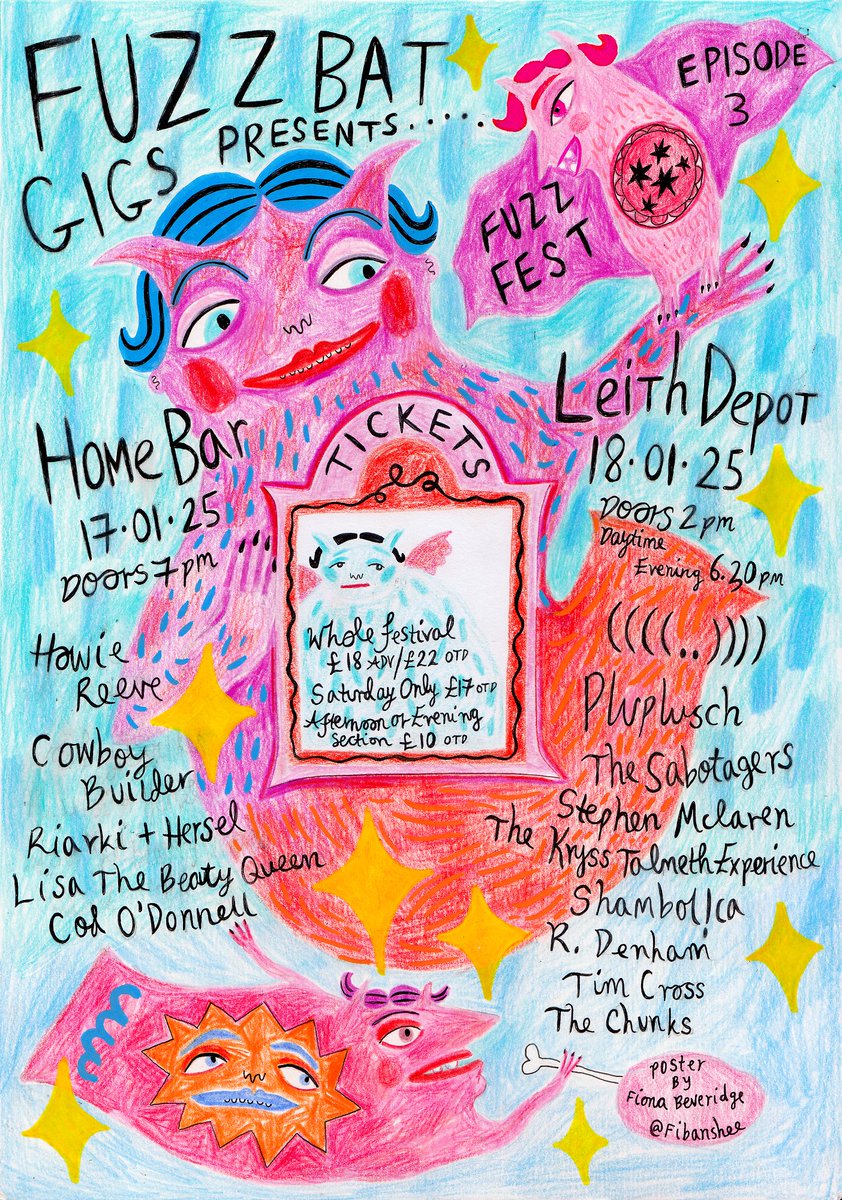 FUZZ BAT
GIGS PRESENTS.....
EPISODE
3
FUZZ
FEST
Home Bar
17.01.25
Doors 7pm
Howie
Reeve
Cowboy
Builder
Riarki + Hersel
Lisa The Beaty Queen
Cod O'Donnell
TICKETS
Whole festival
£18 ADV/£22 OTD
Saturday Only £17 OTD
Afternoon or Evening
section £10 OTD
Leith Depot
18.01.25
Doors 2pm
Daytime
Evening 6.30pm
((((..))))
Pluplusch
The Sabotagers
Stephen Mclaren
The Kryss Talmeth Experience
Shambolica
R. Denham
Tim Cross
The Chunks
poster
By
Fiona Beveridge
@Fibanshee